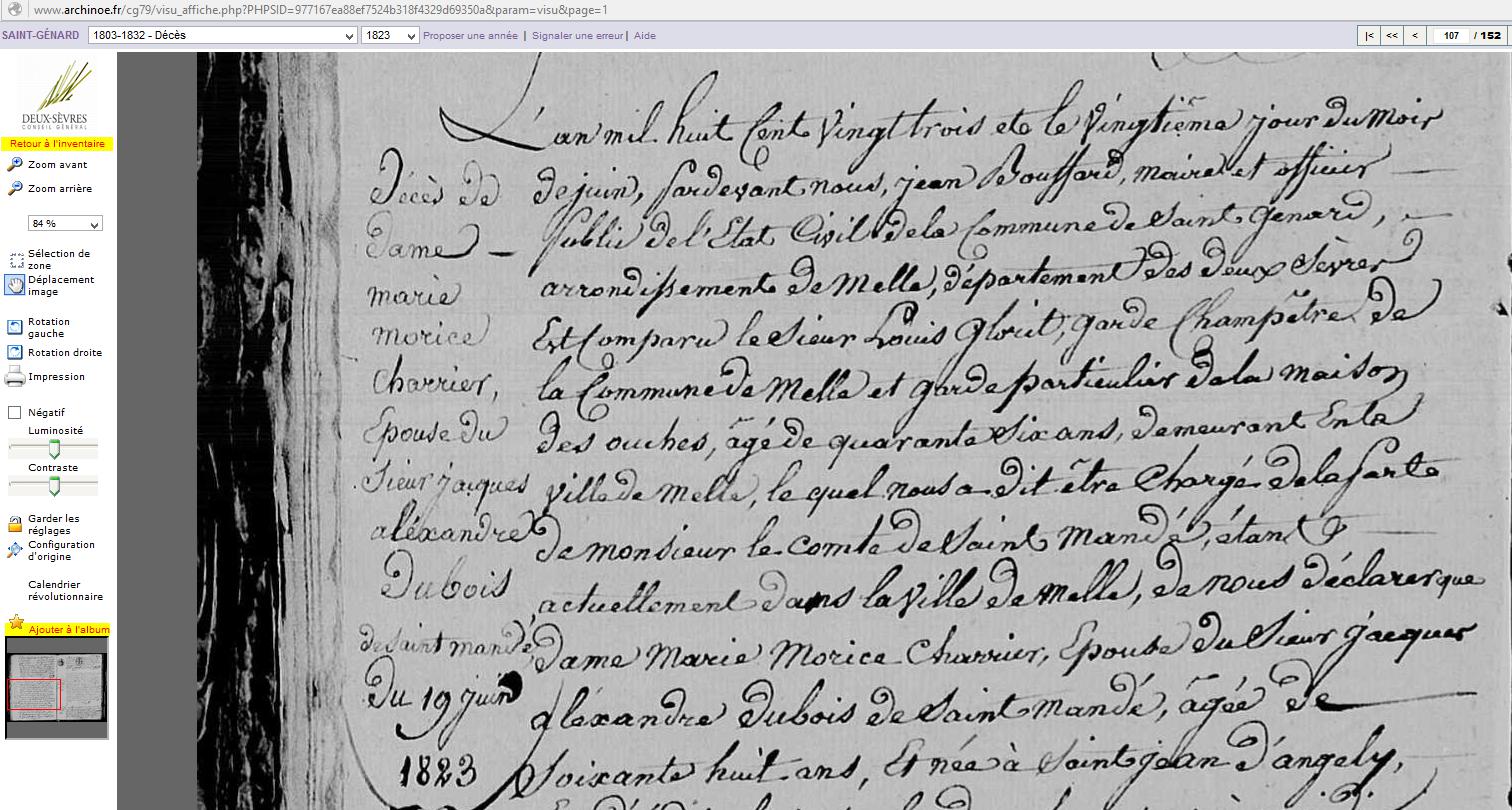 www.archinoe.fr/cg79/visu_affiche.php?PHPSID=977167ea88ef7524b318f4329d69350a&param=visu&page=1
SAINT-GÉNARD 1803-1832 - Décès 1823 Proposer une année | Signaler une erreur | Aide |< << < 107 / 152
DEUX-SÈVRES
CONSEIL GÉNÉRAL
Retour à l'inventaire
Zoom avant
Zoom arrière
84 %
Sélection de
zone
Déplacement
image
Rotation
gauche
Rotation droite
Impression
Négatif
Luminosité
Contraste
Garder les
réglages
Configuration
d'origine
Calendrier
révolutionnaire
Ajouter à l'album
Décès de
Dame
marie
morice
Charrier,
Epouse du
Sieur jacques
aléxandre
Dubois
de Saint mandé,
Du 19 juin
1823
L'an mil huit Cent Vingt trois et le Vingtième jour du Mois
de juin, pardevant nous, jean Bouffard, maire et officier
public de l'Etat Civil de la Commune de Saint Genard,
arrondissement de Melle, département des deux Sèvres
Est Comparu le Sieur Louis garde Champêtre de
la Commune de Melle et garde particulier de la maison
des ouches, âgé de quarante Six ans, demeurant En la
ville de Melle, le quel nous a dit être Chargé de la parte
de monsieur le comte de Saint Mandé, étant
actuellement dans la Ville de Melle, de nous déclarer que
Dame Marie Morice Charrier, Epouse du Sieur jacques
aléxandre Dubois de Saint mandé, âgée de
Soixante huit ans, Et née à Saint jean d'angely,